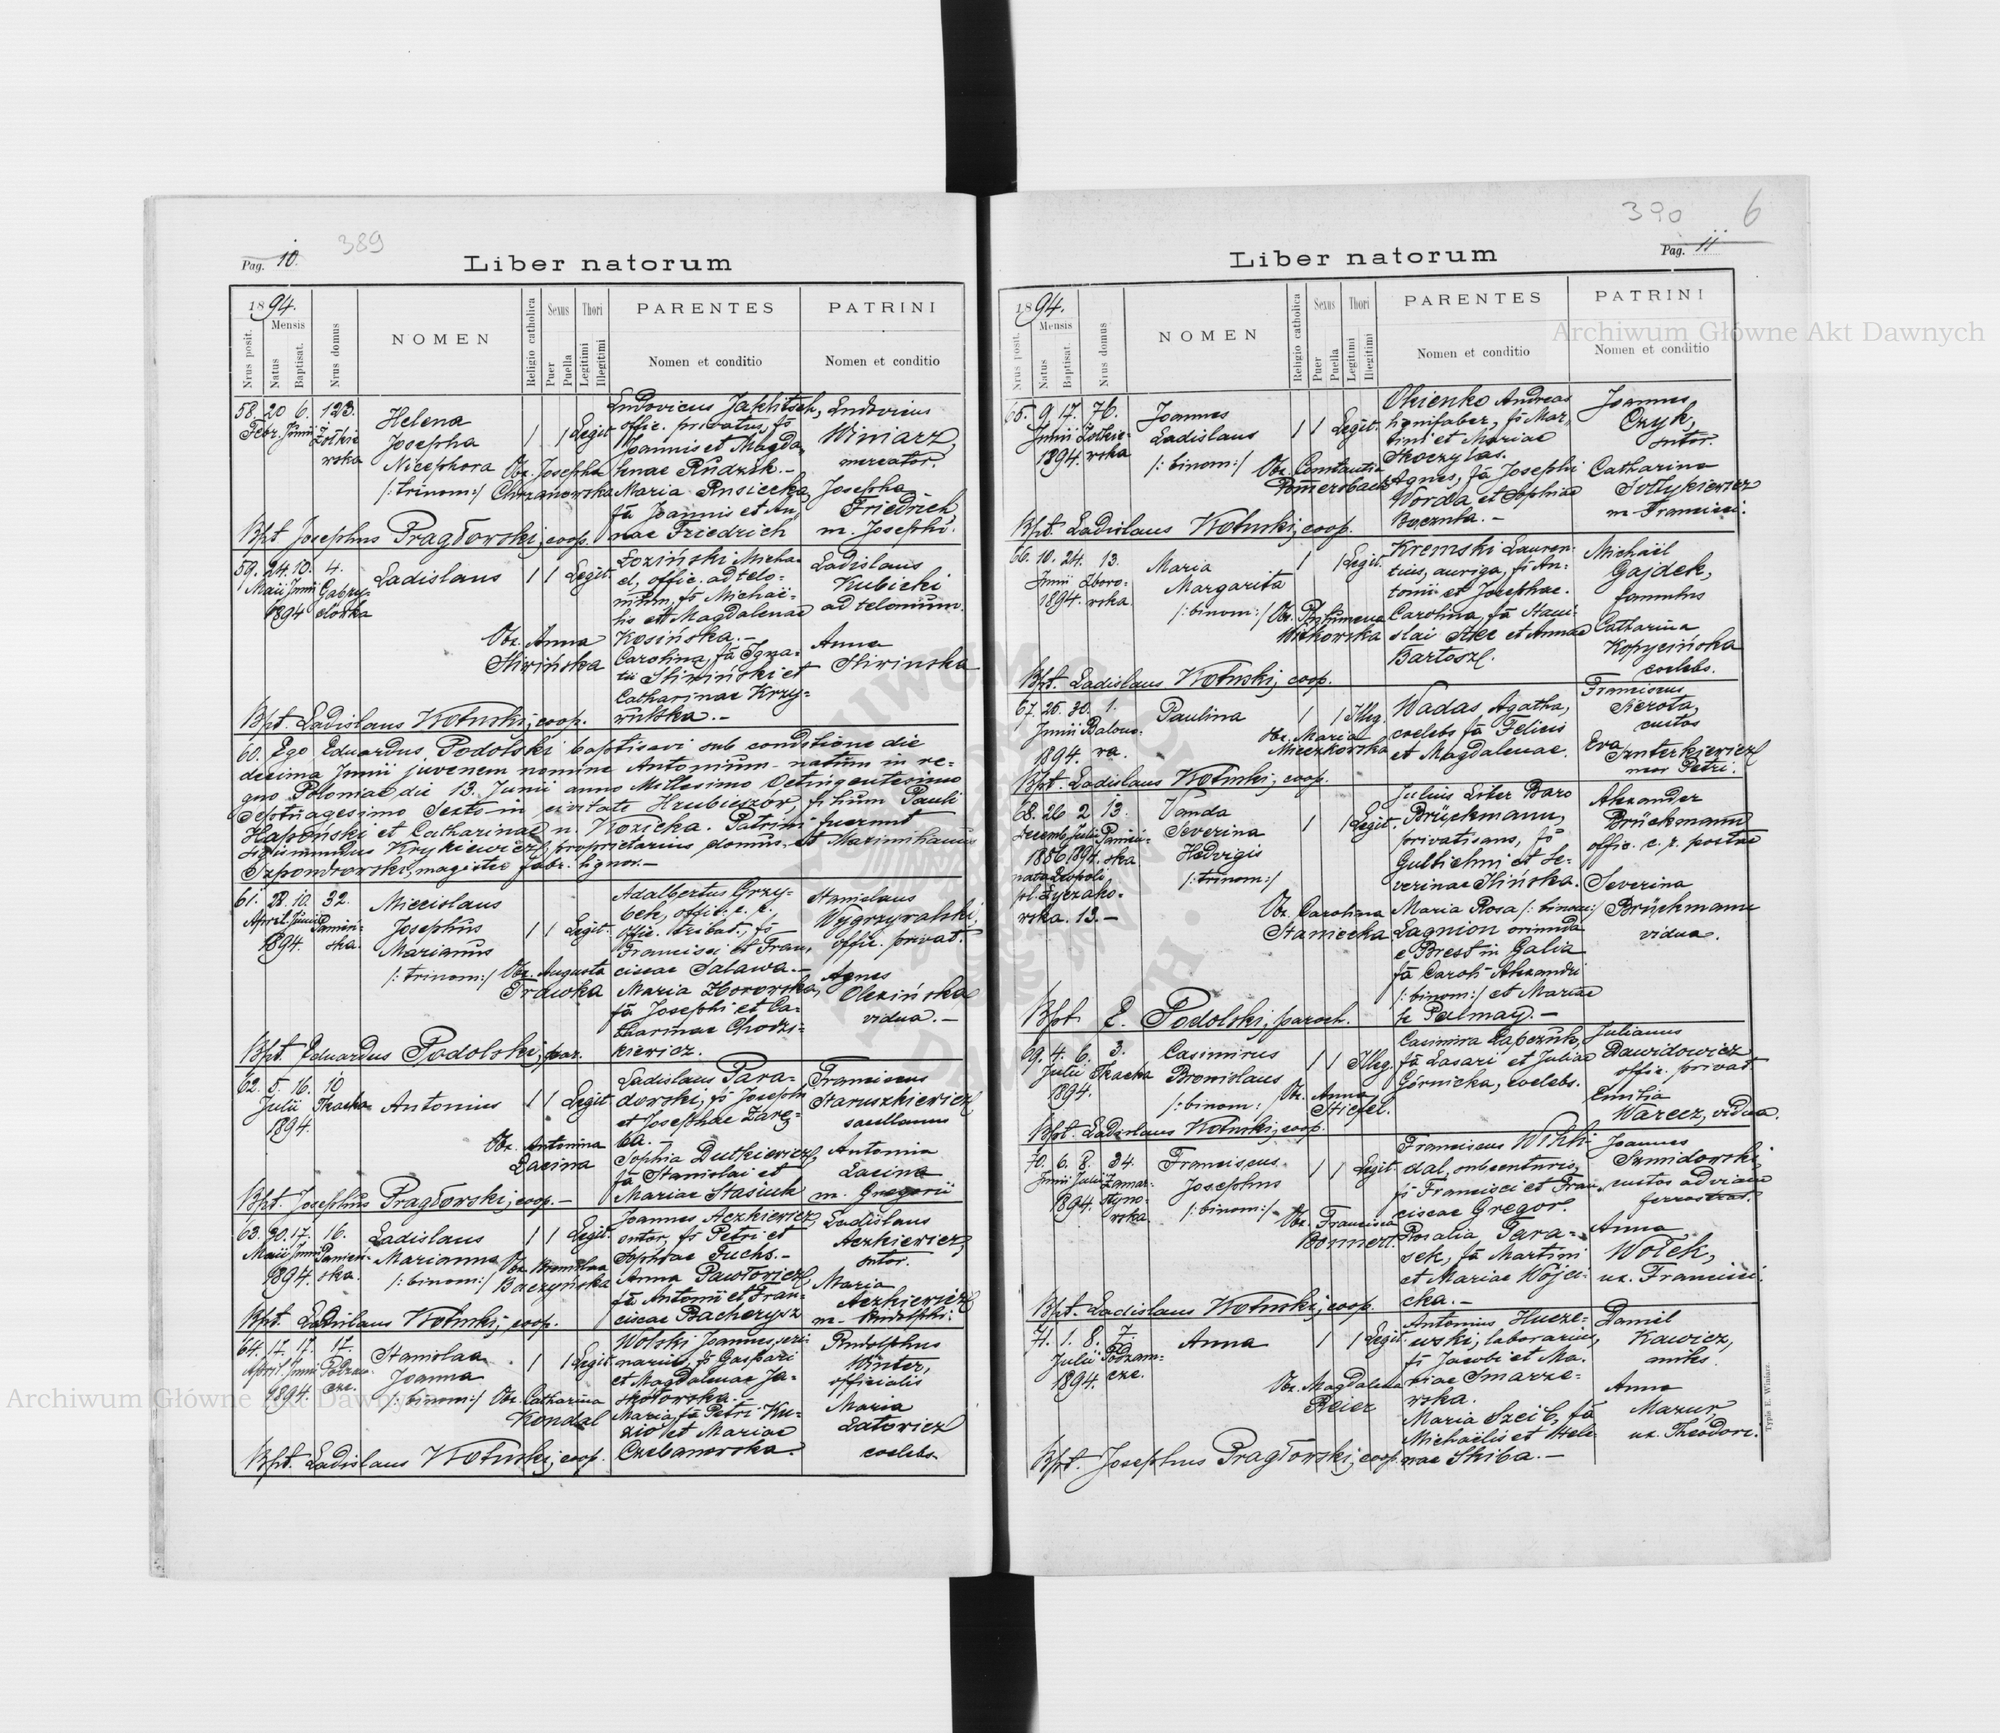 389
Pag. 10.
Liber natorum
1894.
Nrus posit.
Mensis
Natus
Baptisat.
Nrus domus
NOMEN
Religio catholica
Sexus
Puer
Puella
Thori
Legitimi
Illegitimi
PARENTES
Nomen et conditio
PATRINI
Nomen et conditio
58. 20 6. 123.
Febr. Junii Żółkie
wska
Helena
Josepha
Nicephora
/: trinom:/
Obr. Josepha
Chrzanowska
1 1 Legit.
Ludovicus Jaklitsch,
offic. privatus, fs
Joannis et Magda-
lenae Rudzik.-
Maria Rusiecka,
fa Joannis et An-
nae Friedrich
Ludovicus
Winiarz,
mercator.
Josepha
Friedrich,
m. Josephi.
Bpt Josephus Pragłowski, coop.
59. 24. 10. 4.
Maii Junii
1894
Ladislaus
1 1 Legit.
Obr. Anna
Śliwińska
Łoziński Micha-
el, offic. ad telo-
nium, fs Michae-
lis et Magdalenae
Kosińska.-
Carolina, fa Igna-
tii Śliwiński et
Catharinae Krzy-
Ladislaus
Kubicki
ad telonium.
Anna
Śliwinska
Bpt. Ladislaus Kotuski, coop.
60. Ego Eduardus Podolski baptisavi sub conditione die
decima Junii juvenem nomine Antonium - natum in re-
gno Poloniae die 13. Junii anno Millesimo Octingentesimo
Septuagesimo Sexto in civitate Hrubieszów, filium Pauli
et Catharinae n. Kozicka. Patrini fuerunt
Sigismundus Krykiewicz, proprietarius domus, et Maximilianus
Szpondrowski, magister fabr. lignar.-
61. 28. 10. 32.
April. Junii Panień-
1894. ska.
Miecislaus
Josephus
Marianus
/: trinom:/
Obr. Augusta
Trawka
1 1 Legit.
Adalbertus Grzy-
bek, offic. c. r.
offic. tribut., fs
Francisci et Fran-
ciscae Salawa.-
Maria Zborowska,
fa Josephi et Ca-
tharinae Chodzi-
kiewicz.
Stanislaus
Wygrzywalski,
offic. privat.
Agnes
Olezińska
vidua.-
Bpt. Eduardus Podolski, par.
62. 5. 16. 10
Julii Tkacka
1894.
Antonius
1 1 Legit
Obr. Antonina
Łacina
Ladislaus Para-
dowski, fs Joseph
et Josephae Zarę-
ba.-
Sophia Dutkiewicz,
fa Stanislai et
Mariae Stasiuk
Franciscus
Staruszkiewicz
sacellanus
Antonia
Łacina
m. Gregorii
Bpt. Josephus Pragłowski, coop.-
63. 30. 17. 16.
Maii Junii Panień-
1894. ska.
Ladislaus
Marianna
/: binom:/
Obr. Bronislaa
Baczyńska
1 1 Legit.
Joannes Aczkiewicz,
sutor, fs Petri et
Sophiae Fuchs.-
Anna Pawłowicz,
fa Antonii et Fran-
ciscae Bacherysz
Ladislaus
Aczkiewicz,
sutor.
Maria
Aczkiewicz
m. Rudolphi.
Bpt. Ladislaus Kotuski, coop.
64. 17. 17. 17.
April. Junii Podzam-
1894. cze.
Stanislaa
Joanna
/: binom:/
Obr. Catharina
Kondal
1 1 Legit.
Wolski Joannes,
fs Gaspari
et Magdalenae Ja-
skółowska.-
Maria, fa Petri Ku-
zio et Mariae
Czebanowska.
Rudolphus
Winter,
officialis
Maria
Łatowicz
coelebs
Bpt. Ladislaus Kotuski, coop.
390 6
Pag. 11
Liber natorum
1894.
Nrus posit.
Mensis
Natus
Baptisat.
Nrus domus
NOMEN
Religio catholica
Sexus
Puer
Puella
Thori
Legitimi
Illegitimi
PARENTES
Nomen et conditio
PATRINI
Nomen et conditio
65. 9 17. 76.
Junii Żółkie-
1894. wska
Joannes
Ladislaus
/: binom:/
Obr. Constantia
Pomersbach
1 1 Legit.
Okienko Andreas
lignifaber, fs Mar-
tini et Mariae
Skoczylas.
Agnes, fa Josephi
Worda et Sophiae
Boczula.-
Joannes
Czyk,
sutor.
Catharina
Sołtykiewicz
m Francisci.
Bpt. Ladislaus Kotuski, coop.
66. 10. 24. 13.
Junii Zboro-
1894. wska.
Maria
Margarita
/: binom:/
Obr. Philumena
Witkowska
1 1 Legit.
Kremski Lauren-
tius, auriga, fs An-
tonii et Josephae.
Carolina, fa Stani-
slai et Annae
Bartosz.
Michaël
Gajdek,
famulus
Catharina
Kopycińska
coelebs.
Bpt. Ladislaus Kotuski, coop.
67. 25. 30. 1.
Junii Balono-
1894. wa.
Paulina
Obr. Maria
Mieczkowska
1 1 Illeg.
Wadas Agatha,
coelebs fa Felicis
et Magdalenae.
Franciscus
Sierota,
custos
Eva
uxor Petri.
Bpt. Ladislaus Kotuski, coop.
68. 26 2 13.
Decemb. Julii Panień-
1886. 1894. ska
nata Leopoli
pl. Łyczako-
wska. 13.-
Vanda
Severina
Hedvigis
/: trinom:/
Obr. Carolina
Staniecka
1 1 Legit.
Julius Liber Baro
Brückmann,
privatisans, fs
Gulielmi et Se-
verinae Ilińska.
Maria Rosa /: binom:/
Lagnion oriunda
e Brest in Galia
fa Caroli Alexandri
/: binom:/ et Mariae
Palmay.-
Alexander
Brückmann
offic. c. r. postae
Severina
Brückmann
vidua.
Bpt. E. Podolski, paroch.
69. 4. 6. 3.
Julii Tkacka
1894.
Casimirus
Bronislaus
/: binom:/
Obr. Anna
Stiefel.
1 1 Illeg.
Casimira Łapczuk,
fa Lasari et Juliae
Górnicka, coelebs.
Julianus
Dawidowicz
offic. privat.
Emilia
Warecz, vidua.
Bpt. Ladislaus Kotuski, coop.
70. 6. 8. 34.
Junii Julii Zamar-
1894. styno-
wska.
Franciscus
Josephus
/: binom:/
Obr. Francisca
Bonnert.
1 1 Legit.
Franciscus
dal,
fs Francisci et Fran-
ciscae Gregor.
Rosalia Tara-
sek, fa Martini
et Mariae Wójci-
cka.-
Joannes
Szmidowski,
custos ad viam
ferrostrat.
Anna
Wołek,
ux. Francisci.
Bpt. Ladislaus Kotuski, coop.
71. 1. 8. 7.
Julii Podzam-
1894. cze.
Anna
Obr. Magdalena
Reicz
1 1 Legit.
Antonius Hucze-
wski, laborarius,
fs Jacobi et Ma-
riae Smarze-
wska.
Maria Szeib, fa
Michaëlis et Hele-
nae Skiba.-
Daniel
Kawicz,
miles.
Anna
Mazur
ux. Theodori.
Bpt. Josephus Pragłowski, coop.
Typis E. Winiarz.
Archiwum Główne Akt Dawnych
Archiwum Główne Akt Dawnych